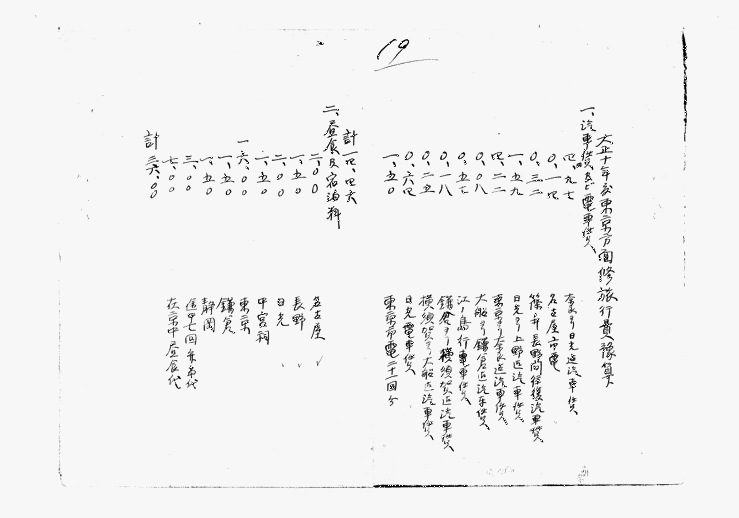 19
大正十年度東京方面修旅行費豫算
一、汽車賃及ビ電車賃、
四、九七 奈良ヨリ日光迄汽車賃
〇、一四 名古屋市電
〇、三二 篠ノ井長野間往復汽車賃、
一、五九 日光ヨリ上野迄汽車賃、
四、二二 東京ヨリ奈良迄汽車賃、
〇、〇八 大船ヨリ鎌倉迄汽車賃、
〇、五七 江ノ島行電車賃、
〇、一八 鎌倉ヨリ横須賀迄汽車賃、
〇、二五 横須賀ヨリ大船迄汽車賃、
〇、六四 日光電車賃、
一、五〇 東京市電二十一回分
計 一四、四六
二、昼食及宿泊料
二、〇〇 名古屋
一、五〇 長野
二、〇〇 日光
一、五〇 中宮祠
一六、〇〇 東京
一、五〇 鎌倉
一、五〇 静岡
三、〇〇 途中七回弁当代
七、〇〇 在京中昼食代
計 三六、〇〇